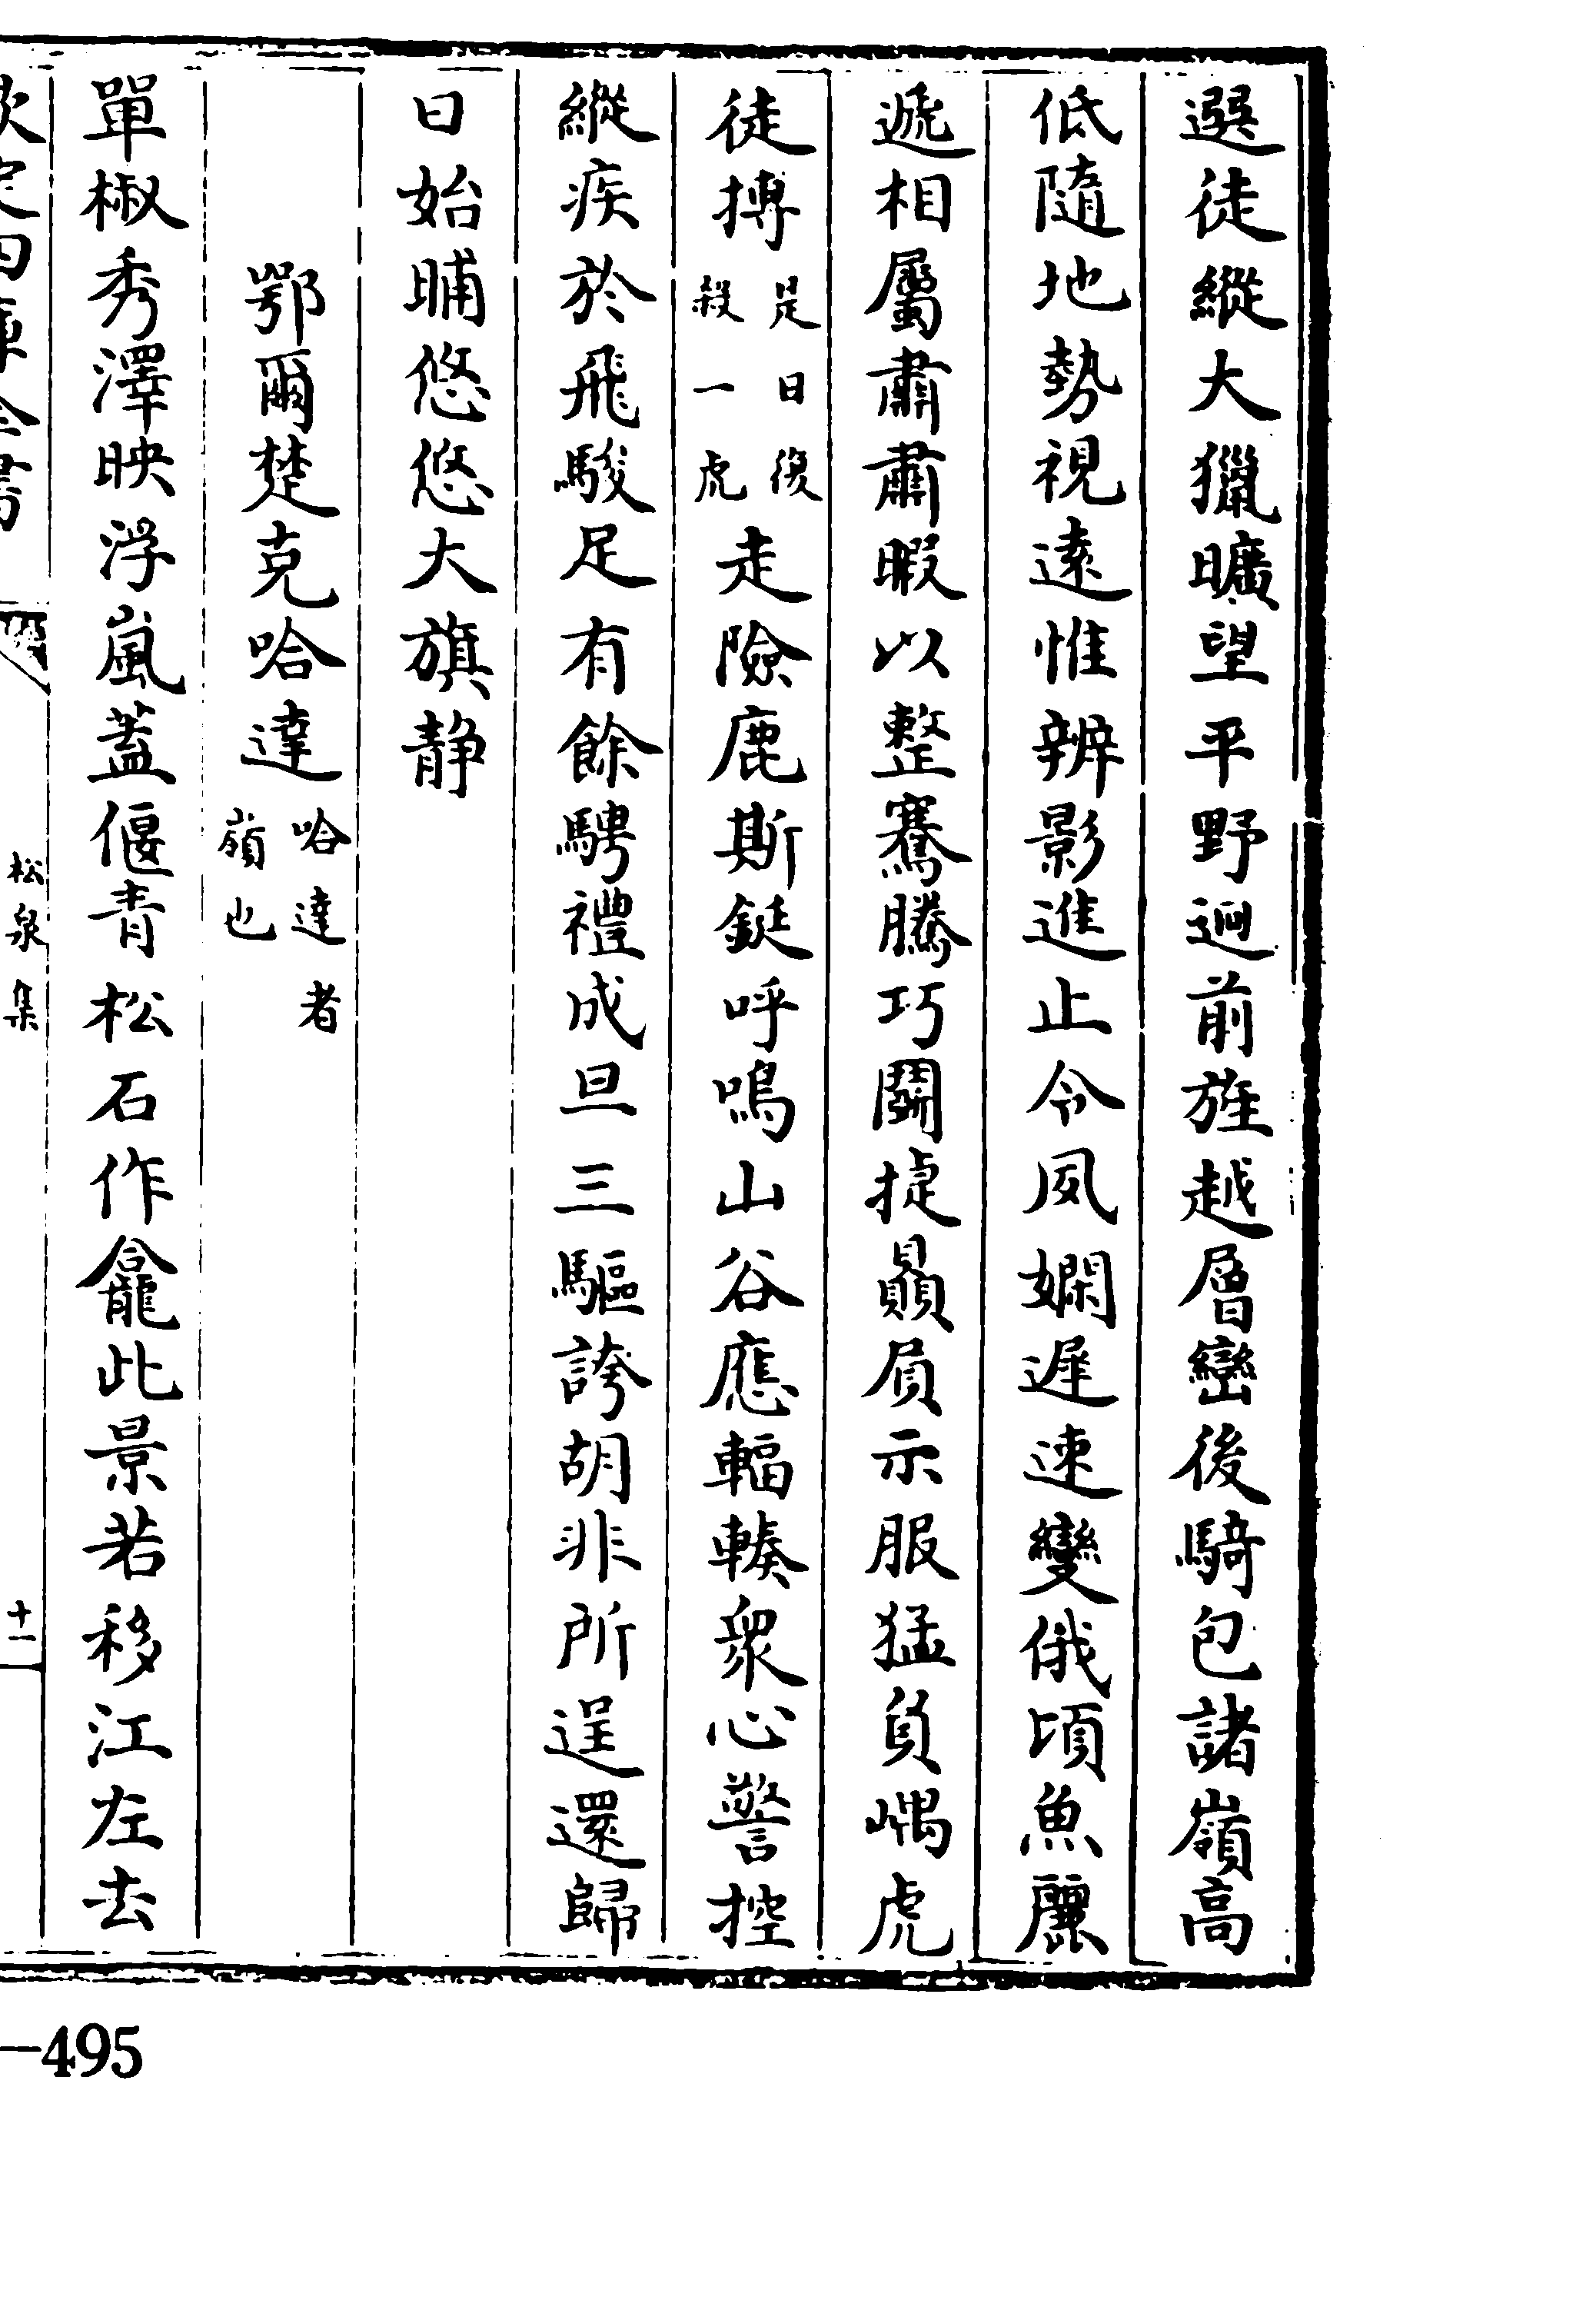 選徒縱大獵曠望平野迥前旌越層巒後騎包諸嶺高
低隨地勢視逺惟辨影進止令夙嫻遲速變俄頃魚麗
遞相屬肅肅暇以整騫騰巧鬭捷贔屓示服猛負嵎虎
徒搏是日復殺一虎走險鹿斯鋌呼鳴山谷應輻輳衆心警控
縱疾於飛駿足有餘騁禮成旦三驅誇胡非所逞還歸
日始晡悠悠大旗静
鄂爾楚克哈達哈達者嶺也
單椒秀澤映浮嵐蓋偃青松石作龕此景若移江左去
欽定四庫全書
松泉集
十一
—495